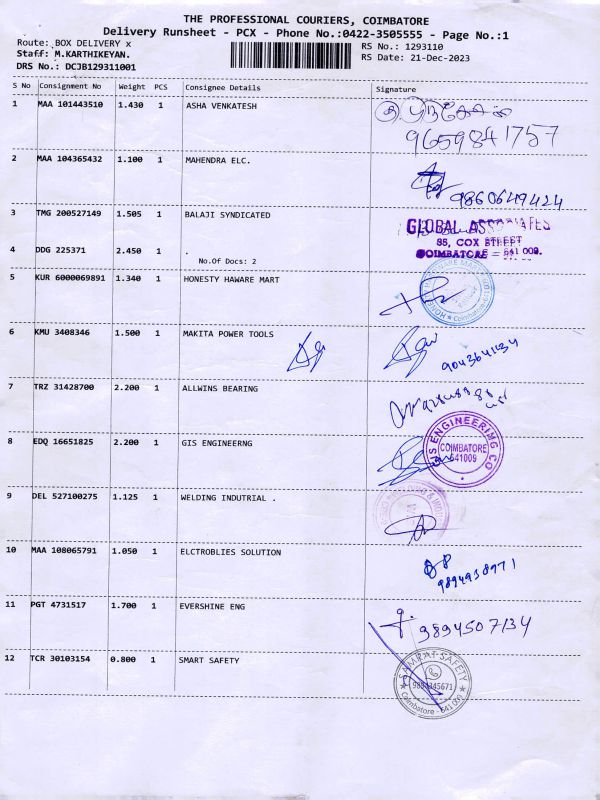 THE PROFESSIONAL COURIERS, COIMBATORE
Delivery Runsheet - PCX - Phone No.:0422-3505555 - Page No.:1
Route: BOX DELIVERY x
RS No.: 1293110
Staff: M.KARTHIKEYAN.
RS Date: 21-Dec-2023
DRS No.: DCJB129311001
S No Consignment No Weight PCS Consignee Details Signature
1 MAA 101443510 1.430 1 ASHA VENKATESH
9659841757
2 MAA 104365432 1.100 1 MAHENDRA ELC.
9860649424
3 TMG 200527149 1.505 1 BALAJI SYNDICATED
GLOBAL ASSOCIATES
85, COX STREET
COIMBATORE - 641 009.
4 DDG 225371 2.450 1 .
No.Of Docs: 2
5 KUR 6000069891 1.340 1 HONESTY HAWARE MART
6 KMU 3408346 1.500 1 MAKITA POWER TOOLS
7 TRZ 31428700 2.200 1 ALLWINS BEARING
8 EDQ 16651825 2.200 1 GIS ENGINEERNG
GIS ENGINEERING CO
COIMBATORE
641009
9 DEL 527100275 1.125 1 WELDING INDUTRIAL .
10 MAA 108065791 1.050 1 ELCTROBLIES SOLUTION
9894938971
11 PGT 4731517 1.700 1 EVERSHINE ENG
9894507134
12 TCR 30103154 0.800 1 SMART SAFETY
SAMRAT SAFETY
Coimbatore - 641 009